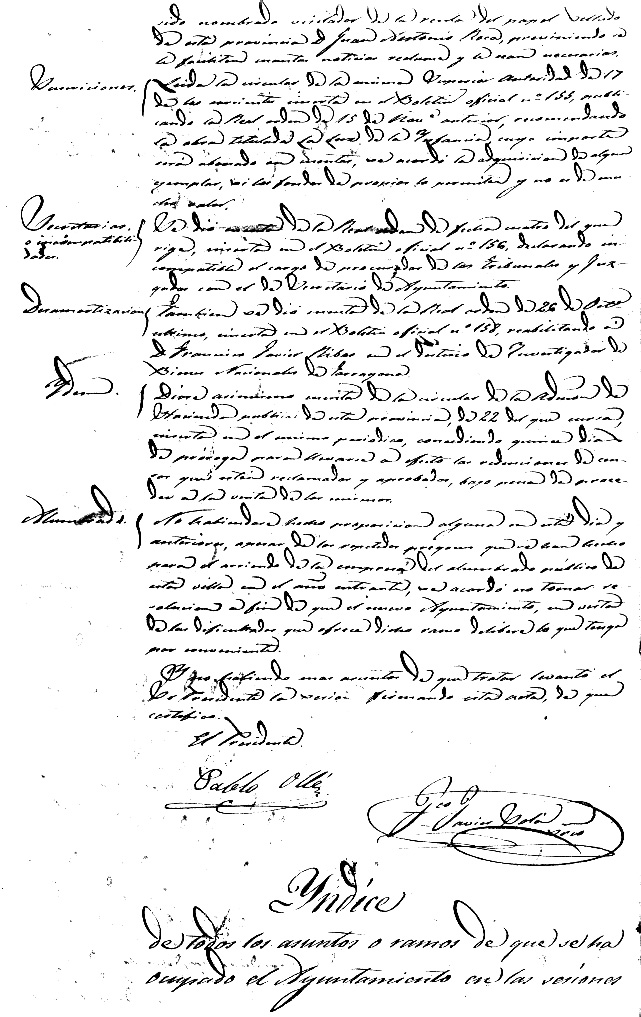 sido nombrado visitador de la renta del papel sellado
de esta provincia D. Juan Antonio Roca, previniendo se
le faciliten cuantas noticias reclame y le sean necesarias.
Suscriciones.
Leida la circular de la misma Superior Autoridad de 17
de los corrientes inserta en el Boletin oficial nº 155, publi-
cando la Real orden de 15 de anterior, recomendando
la obra titulada La Luz de la Infancia, cuyo importe
será abonado en cuentas, se acordó la adquisicion de algun
ejemplar, si los fondos de propios lo permiten y no es de mu-
cho valor.
Secretarios.
o incompatibili-
dades.
Se dió cuenta de la Real orden de fecha cuatro del que
rige, inserta en el Boletin oficial nº 156, declarando in-
compatible el cargo de procurador de los Tribunales y Juz-
gados con el de Secretario de Ayuntamiento.
Desamortizacion
Tambien se dió cuenta de la Real orden de 26 de Octe
ultimo, inserta en el Boletin oficial nº 158, reabilitando á
D. Francisco Javier Ribas en el destino de Investigador de
Bienes Nacionales de Tarragona
Ydem.
Diose asimismo cuenta de la circular de la Admon de
Hacienda publica de esta provincia, de 22 del que cursa,
inserta en el mismo periodico, concediendo quince dias
de próroga para llevarse á efecto las redenciones de cen-
sos que esten reclamadas y aprobadas, bajo pena de proce-
der á la venta de los mismos.
Alumbrado.
No habiendose hecho proposicion alguna en este dia y
anteriores, apesar de los repetidos pregones que se han hecho
para el arriendo de la empresa del alumbrado público de
esta villa en el año entrante, se acordó no tomar re-
solucion á fin de que el nuevo Ayuntamiento, en vista
de las dificultades que ofrece dicho ramo delibere lo que tenga
por conveniente.
Y no habiendo mas asuntos de que tratar levantó el
Sr. Presidente la sesion firmando esta acta, de que
certifico.
El Presidente
Pablo Ollé
Fco
Javier
Yndice
de todos los asuntos o ramos de que se ha
ocupado el Ayuntamiento en las sesiones